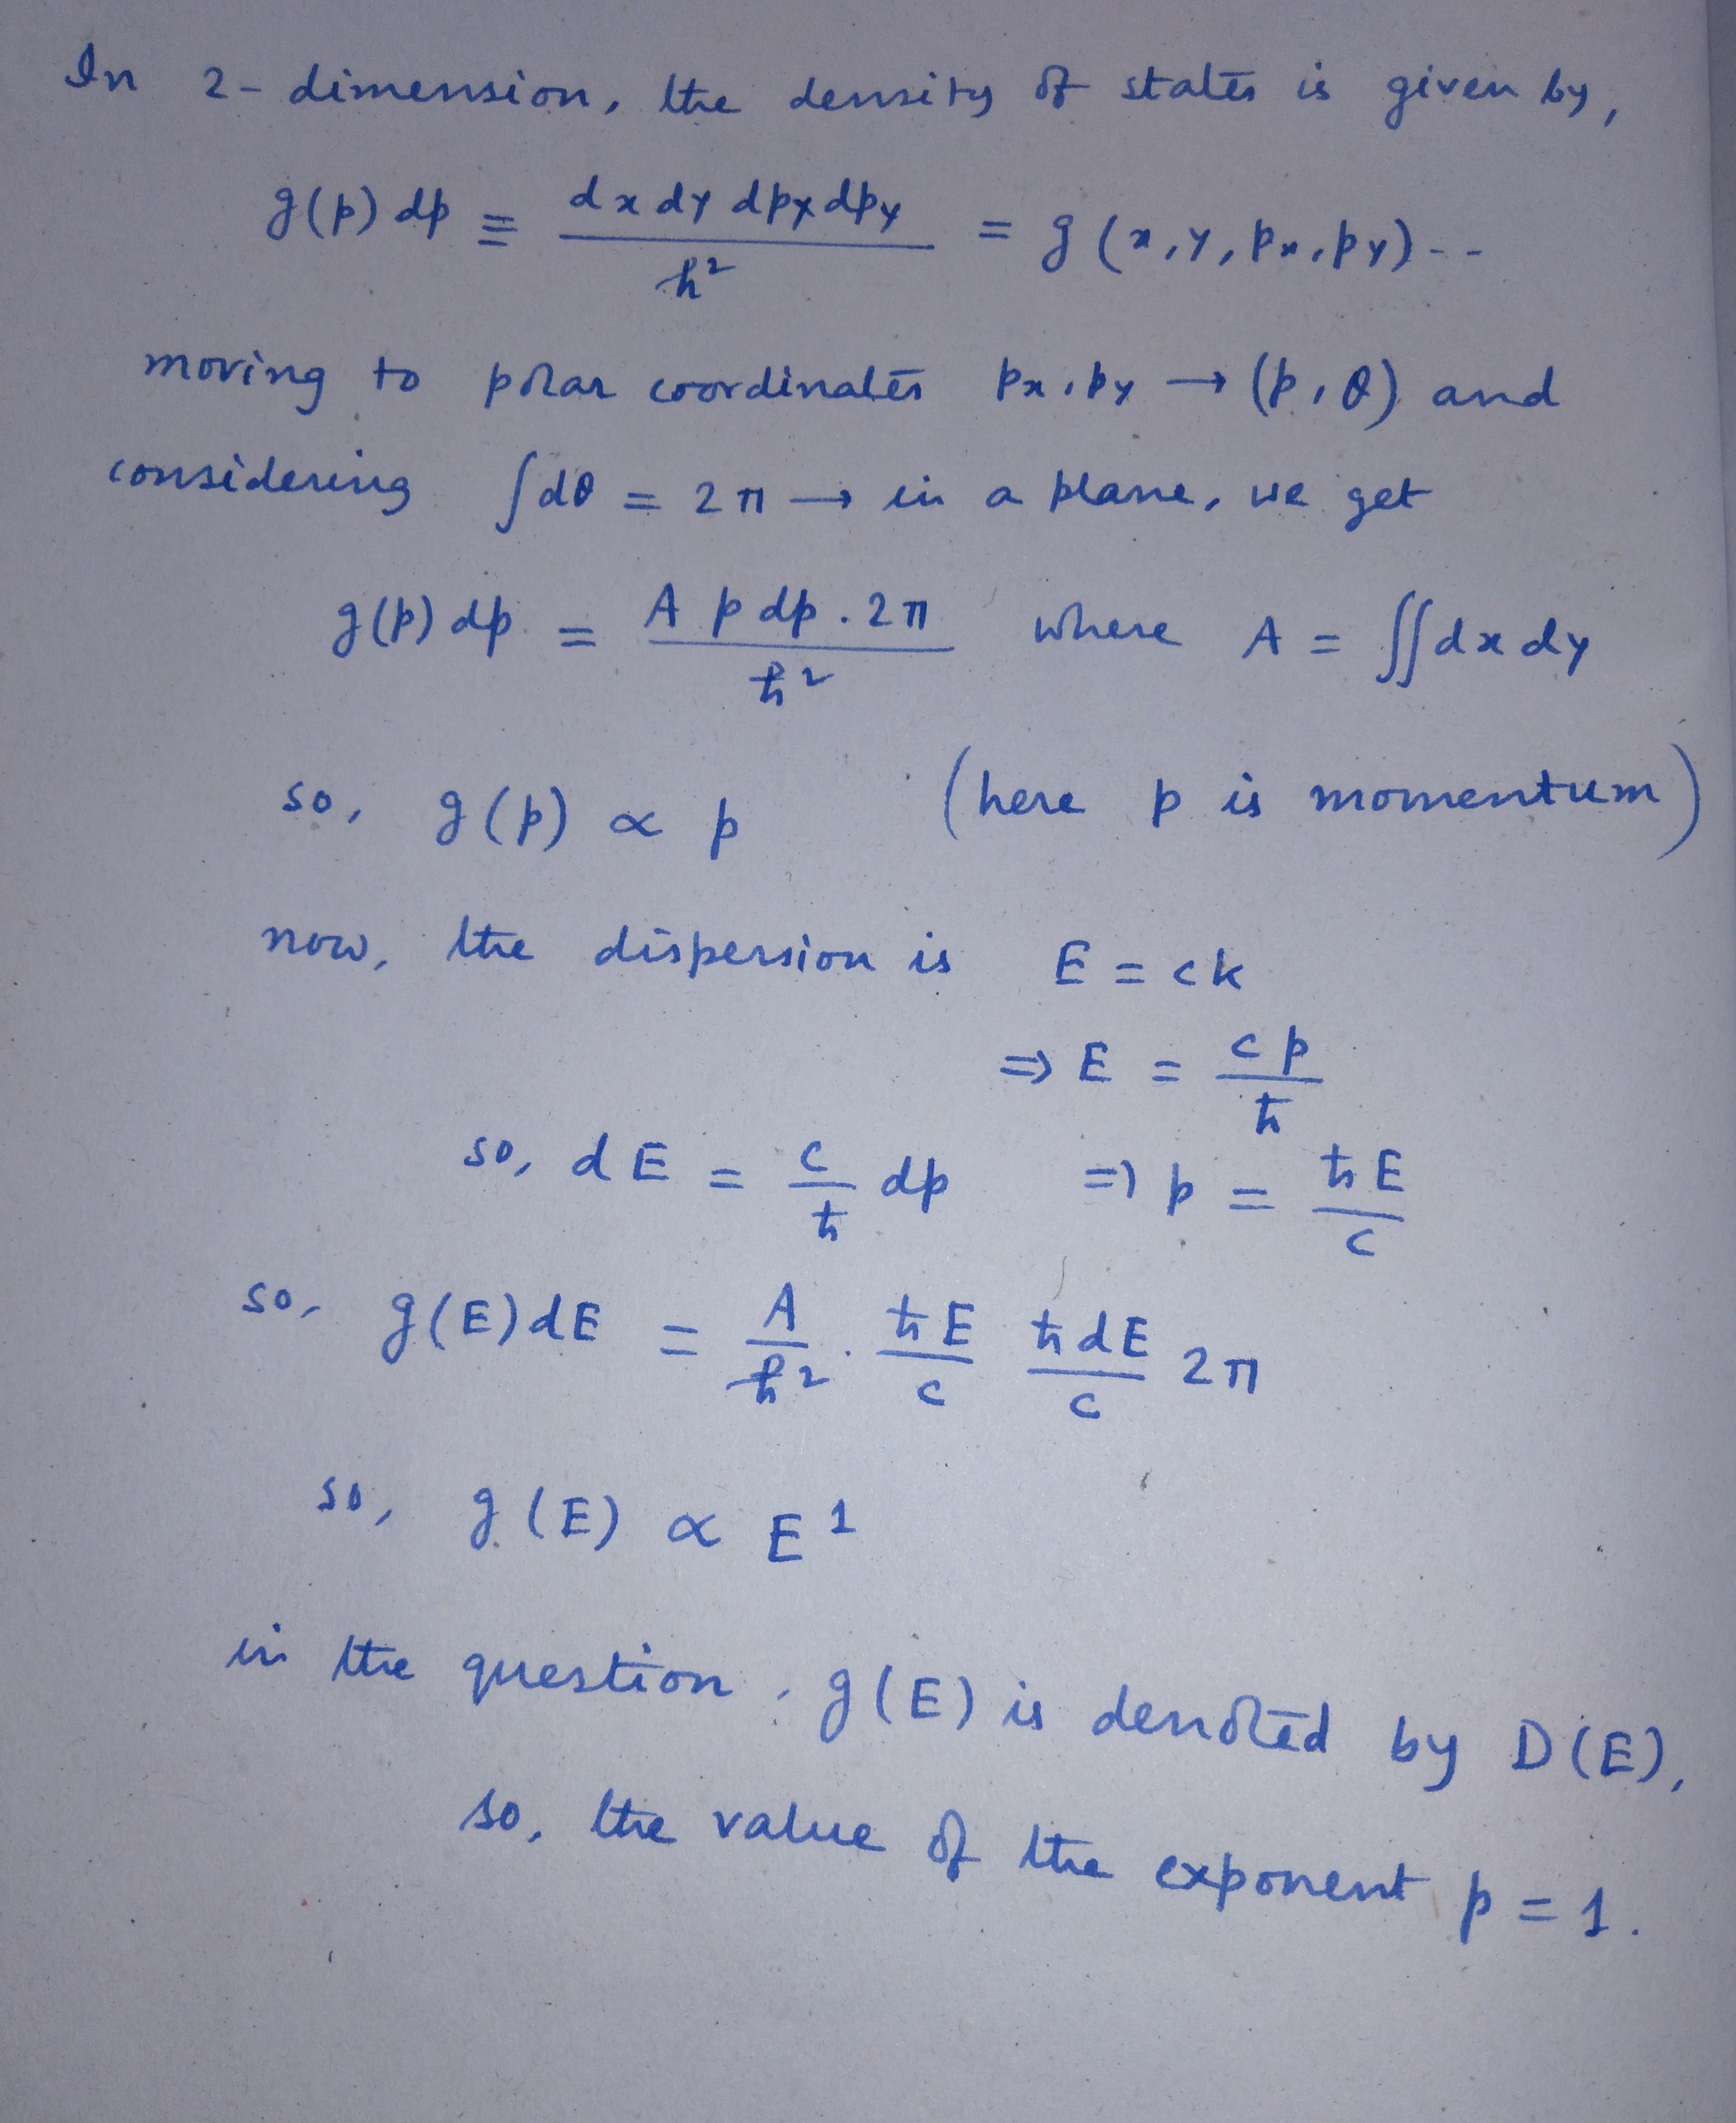 In 2-dimension, the density of states is given by,
g(p) dp = dx dy dpx dpy / ħ² = g (x, y, px, py) - -
moving to polar coordinates px, py → (p, θ) and
considering ∫dθ = 2π → in a plane, we get
g(p) dp = A p dp . 2π / ħ² where A = ∬dx dy
so, g(p) ∝ p (here p is momentum)
now, the dispersion is E = ck
⇒ E = cp / ħ
so, dE = c / ħ dp ⇒ p = ħE / c
so, g(E)dE = A / ħ² . ħE / c ħdE / c 2π
so, g(E) ∝ E¹
in the question, g(E) is denoted by D(E),
so, the value of the exponent p = 1.